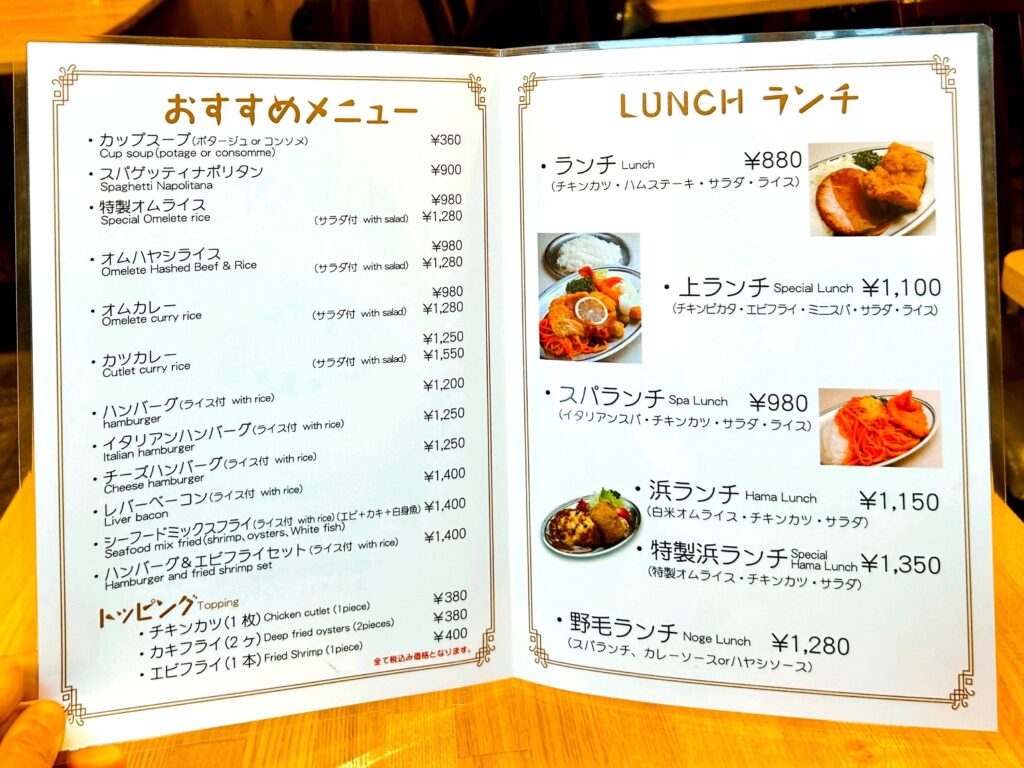 おすすめメニュー
・カップスープ(ポタージュ or コンソメ) ¥360
Cup soup(potage or consomme)
・スパゲッティナポリタン ¥900
Spaghetti Napolitana
・特製オムライス ¥980
Special Omelete rice (サラダ付 with salad) ¥1,280
・オムハヤシライス ¥980
Omelete Hashed Beef & Rice (サラダ付 with salad) ¥1,280
・オムカレー ¥980
Omelete curry rice (サラダ付 with salad) ¥1,280
・カツカレー ¥1,250
Cutlet curry rice (サラダ付 with salad) ¥1,550
・ハンバーグ(ライス付 with rice) ¥1,200
hamburger
・イタリアンハンバーグ(ライス付 with rice) ¥1,250
Italian hamburger
・チーズハンバーグ(ライス付 with rice) ¥1,250
Cheese hamburger
・レバーベーコン(ライス付 with rice) ¥1,400
Liver bacon
・シーフードミックスフライ(ライス付 with rice)(エビ+カキ+白身魚) ¥1,400
Seafood mix fried(shrimp、oysters、White fish)
・ハンバーグ&エビフライセット(ライス付 with rice) ¥1,400
Hamburger and fried shrimp set
トッピング Topping
・チキンカツ(1枚) Chicken cutlet (1piece) ¥380
・カキフライ(2ヶ) Deep fried oysters (2pieces) ¥380
・エビフライ(1本) Fried Shrimp (1piece) ¥400
全て税込み価格となります。
LUNCH ランチ
・ランチ Lunch ¥880
(チキンカツ・ハムステーキ・サラダ・ライス)
・上ランチ Special Lunch ¥1,100
(チキンピカタ・エビフライ・ミニスパ・サラダ・ライス)
・スパランチ Spa Lunch ¥980
(イタリアンスパ・チキンカツ・サラダ・ライス)
・浜ランチ Hama Lunch ¥1,150
(白米オムライス・チキンカツ・サラダ)
・特製浜ランチ Special Hama Lunch ¥1,350
(特製オムライス・チキンカツ・サラダ)
・野毛ランチ Noge Lunch ¥1,280
(スパランチ、カレーソースorハヤシソース)